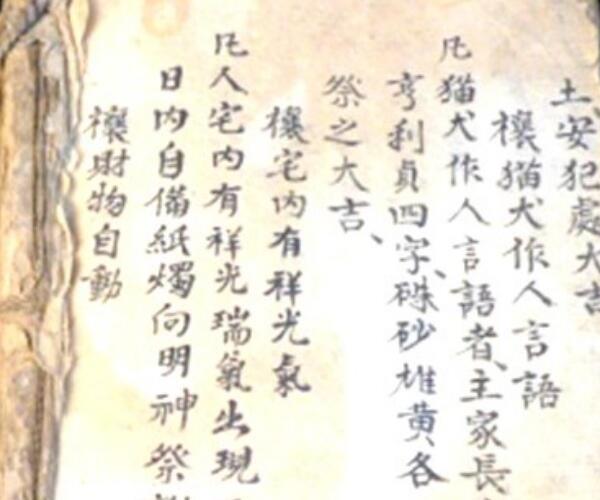 土、安犯處大吉
禳猫犬作人言語
凡猫犬作人言語者、主家長
亨利貞四字、硃砂雄黃各
祭之大吉、
禳宅内有祥光氣
凡人宅内有祥光瑞氣出現
日内自俻紙燭向明神祭
禳財物自動